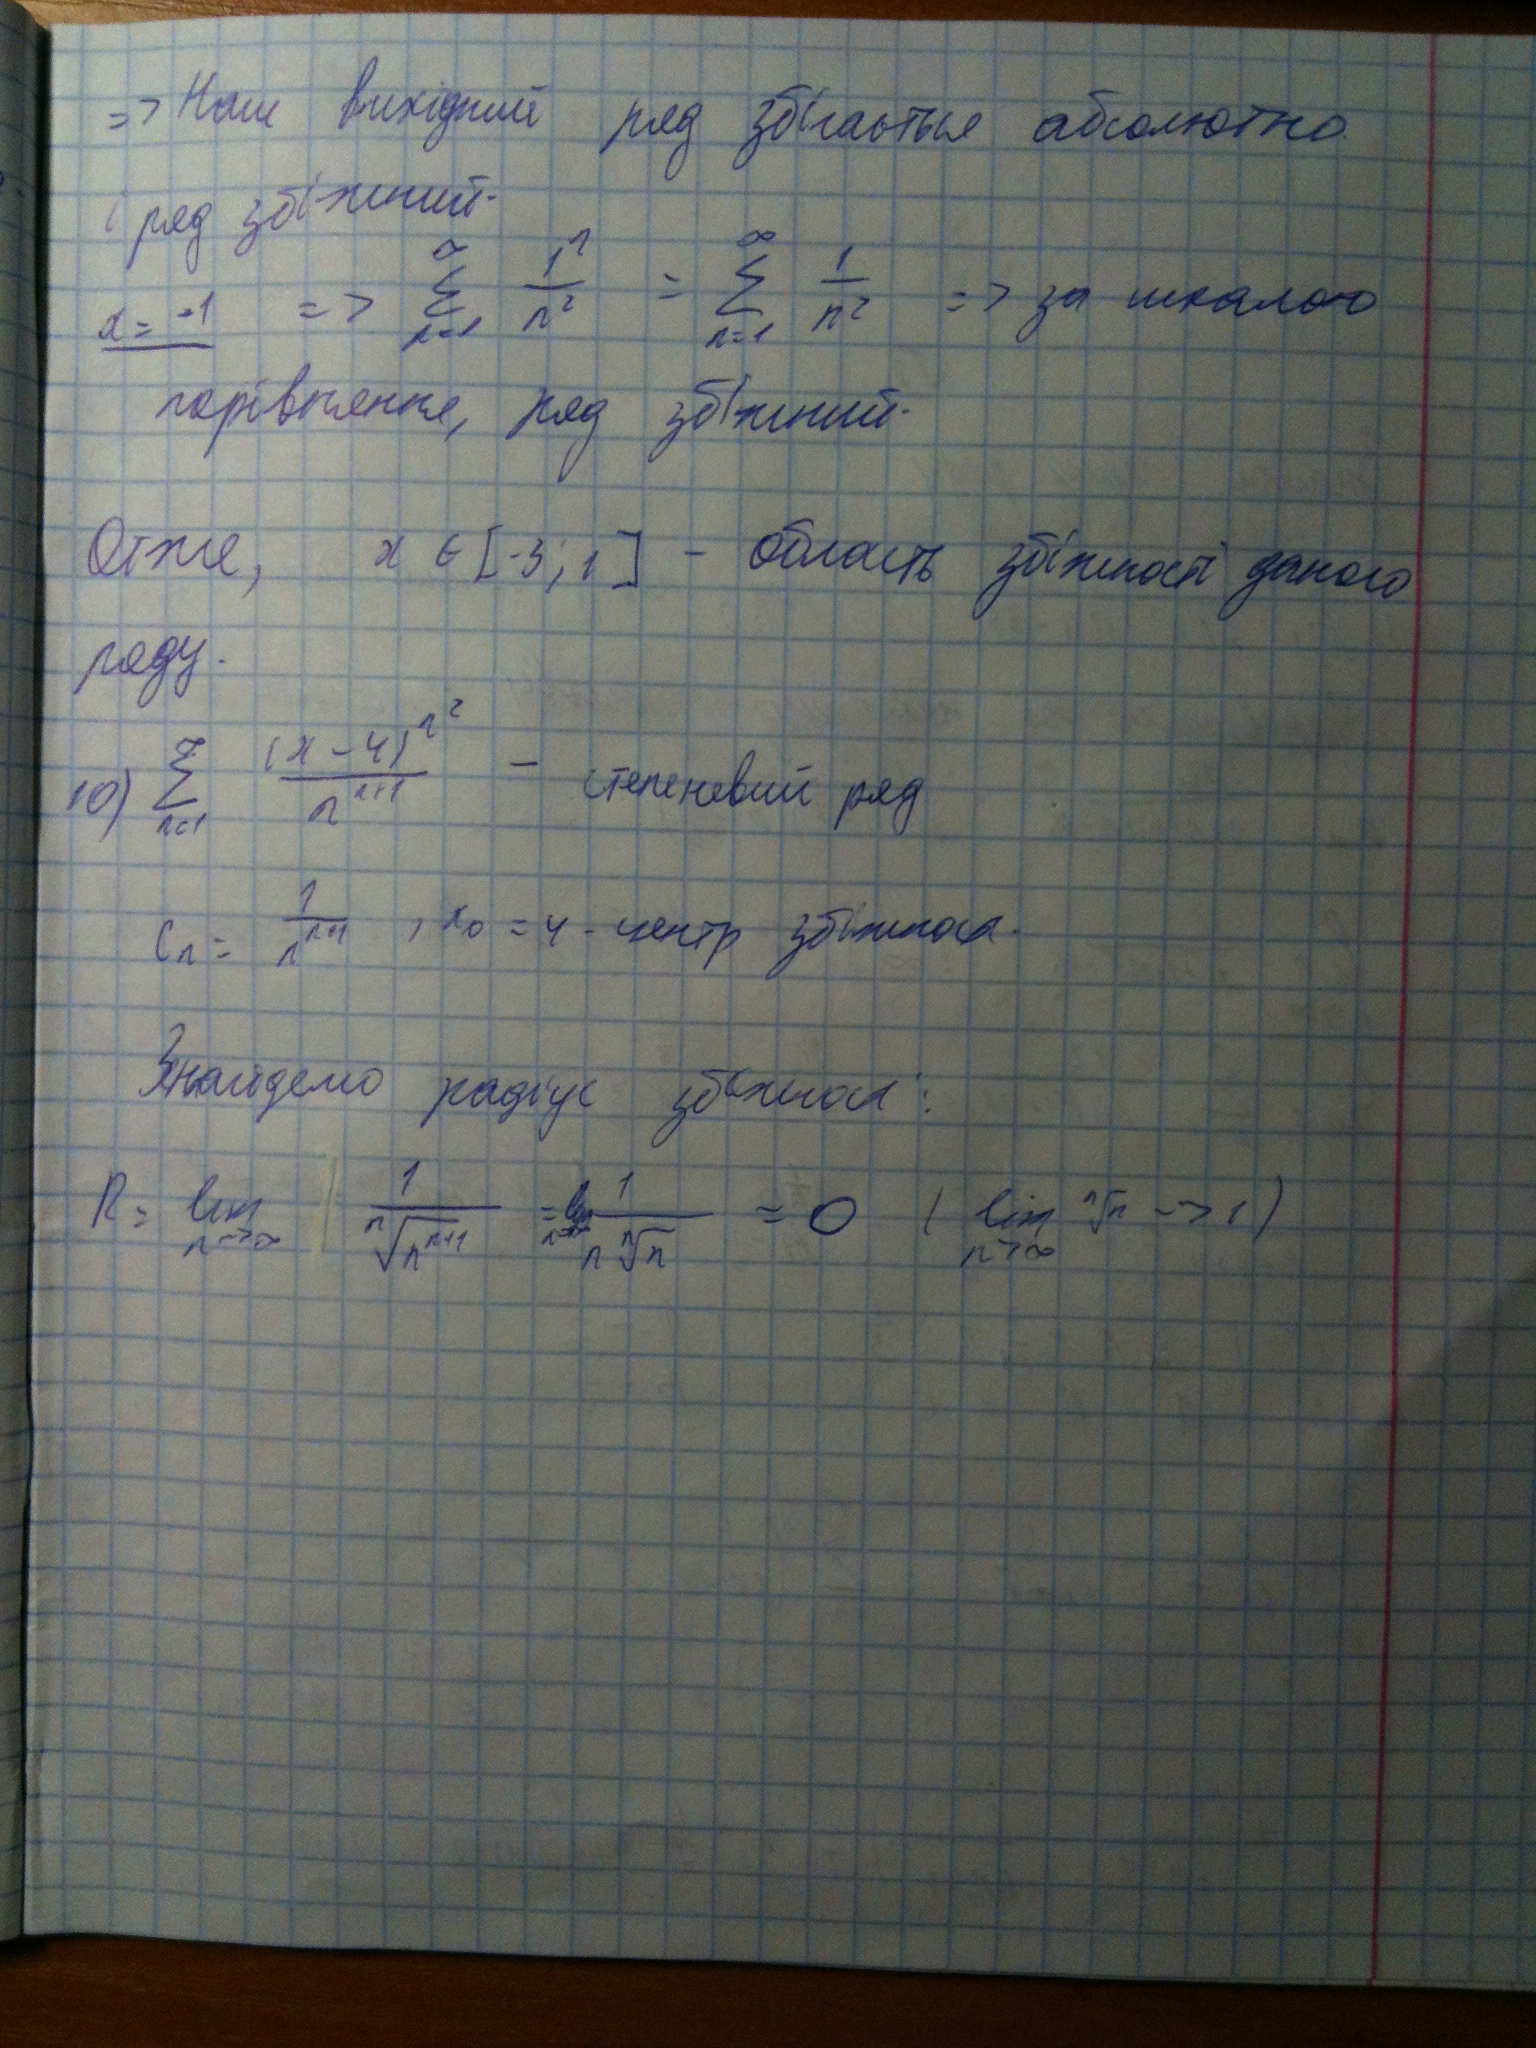 => Наш вихідний ряд збігається абсолютно
і ряд збіжний.
x = -1 => ∑_{n=1}^{∞} 1^n/n^2 = ∑_{n=1}^{∞} 1/n^2 => за шкалою
порівняння, ряд збіжний.
Отже, x ∈ [-3; 1] - область збіжності даного
ряду.
10) ∑_{n=1}^{∞} (x-4)^{n^2}/n^{n+1} - степеневий ряд
C_n = 1/n^{n+1}, x_0 = 4 - центр збіжності.
Знайдемо радіус збіжності:
R = lim_{n->∞} 1/ⁿ√(n^{n+1}) = lim_{n->∞} 1/(n ⁿ√n) = 0 ( lim_{n->∞} ⁿ√n -> 1)